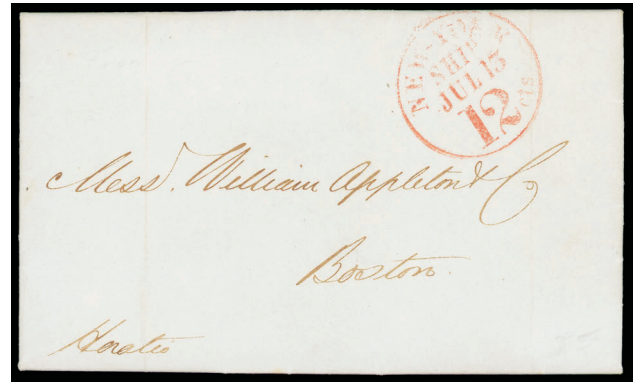 NEW-YORK
SHIP
JUL 13
12 cts
Mess. William Appleton & Co
Boston
Horatio